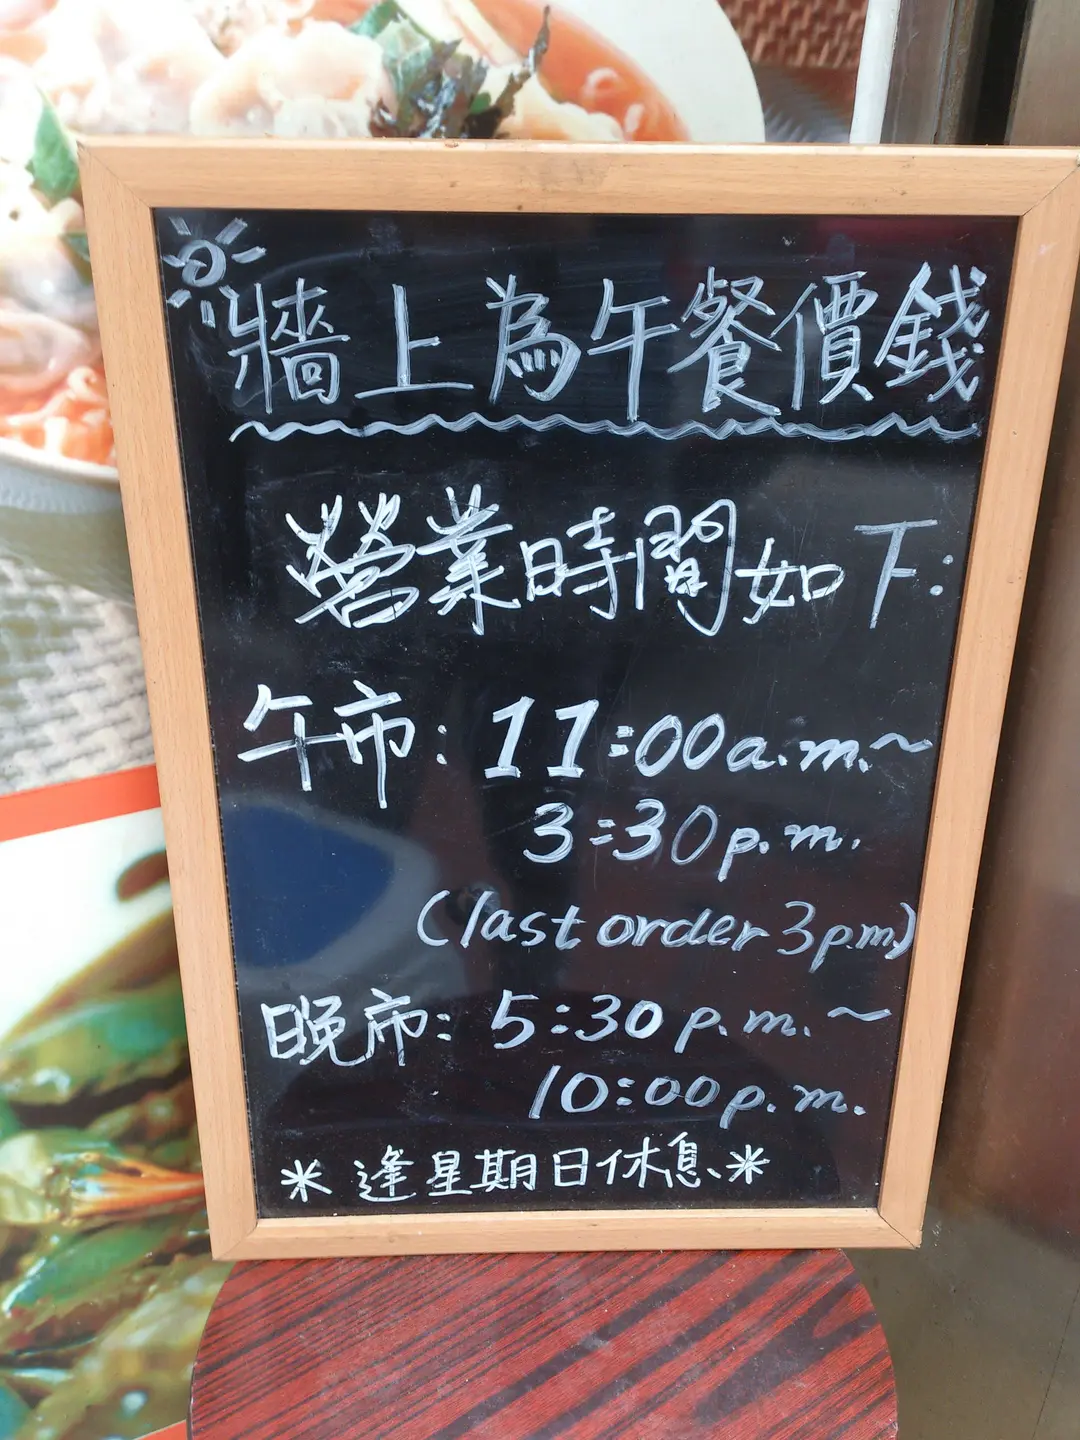 牆上為午餐價錢
營業時間如下:
午市: 11:00a.m.~
3:30p.m.
(last order 3p.m.)
晚市: 5:30p.m.~
10:00p.m.
*逢星期日休息*